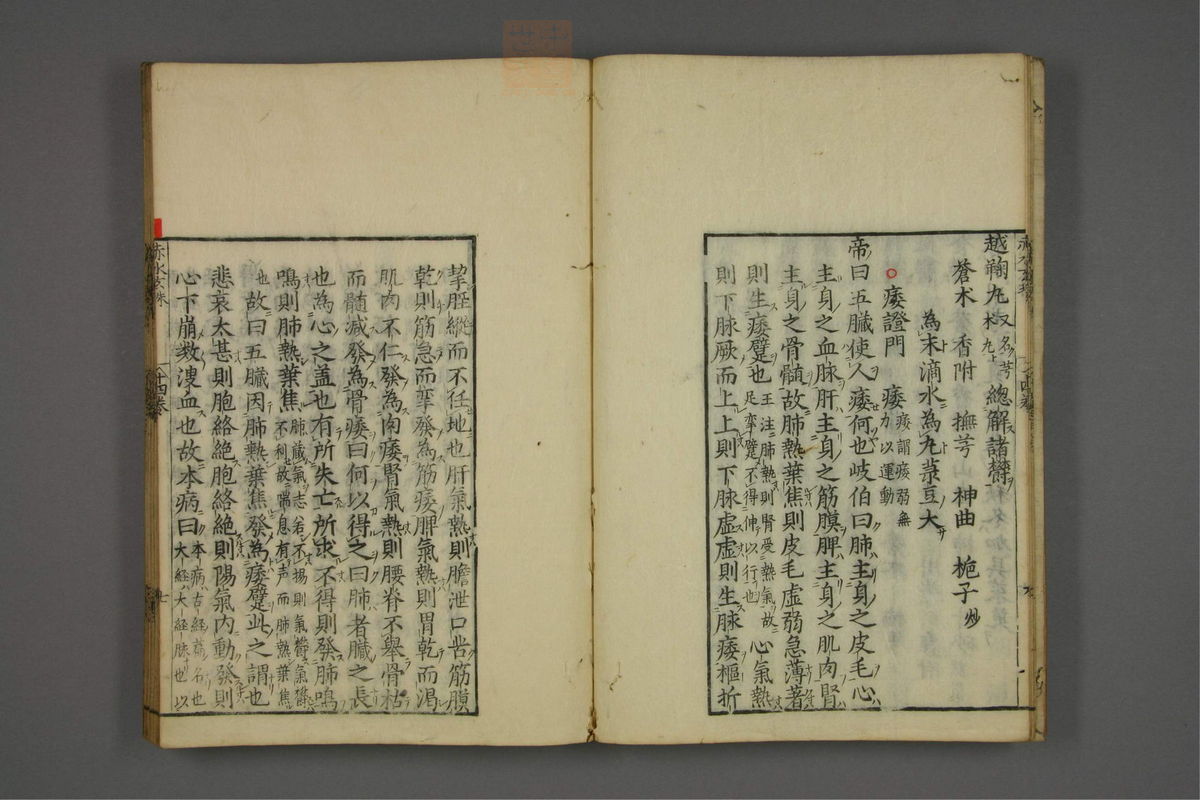 越鞠丸 又名芎术丸 總解諸欝
蒼术 香附 撫芎 神曲 梔子炒
為末滴水為丸菉豆大
○痿證門 痿 痿謂痿弱無力以運動
帝曰五臟使人痿何也岐伯曰肺主身之皮毛心
主身之血脉肝主身之筋膜脾主身之肌肉腎
主身之骨髄故肺熱葉焦則皮毛虚弱急薄著
則生痿躄也 王注肺熱則腎受熱氣故足攣躄不得伸以行也 心氣熱
則下脉厥而上上則下脉虚虚則生脉痿樞折
挈脛縱而不任地也肝氣熱則膽泄口苦筋膜
乾則筋急而攣發為筋痿脾氣熱則胃乾而渇
肌肉不仁發為肉痿腎氣熱則腰脊不舉骨枯
而髄減發為骨痿曰何以得之曰肺者臟之長
也為心之盖也有所失亡所求不得則發肺鳴
鳴則肺熱葉焦 肺藏氣志不揚則氣欝氣欝不利故喘息有声而肺熱葉焦
也 故曰五臟因肺熱葉焦發為痿躄此之謂也
悲哀太甚則胞絡絶胞絡絶則陽氣内動發則
心下崩数溲血也故本病曰 本病古經篇名也大經大經脉也以
赤水玄珠 十四卷